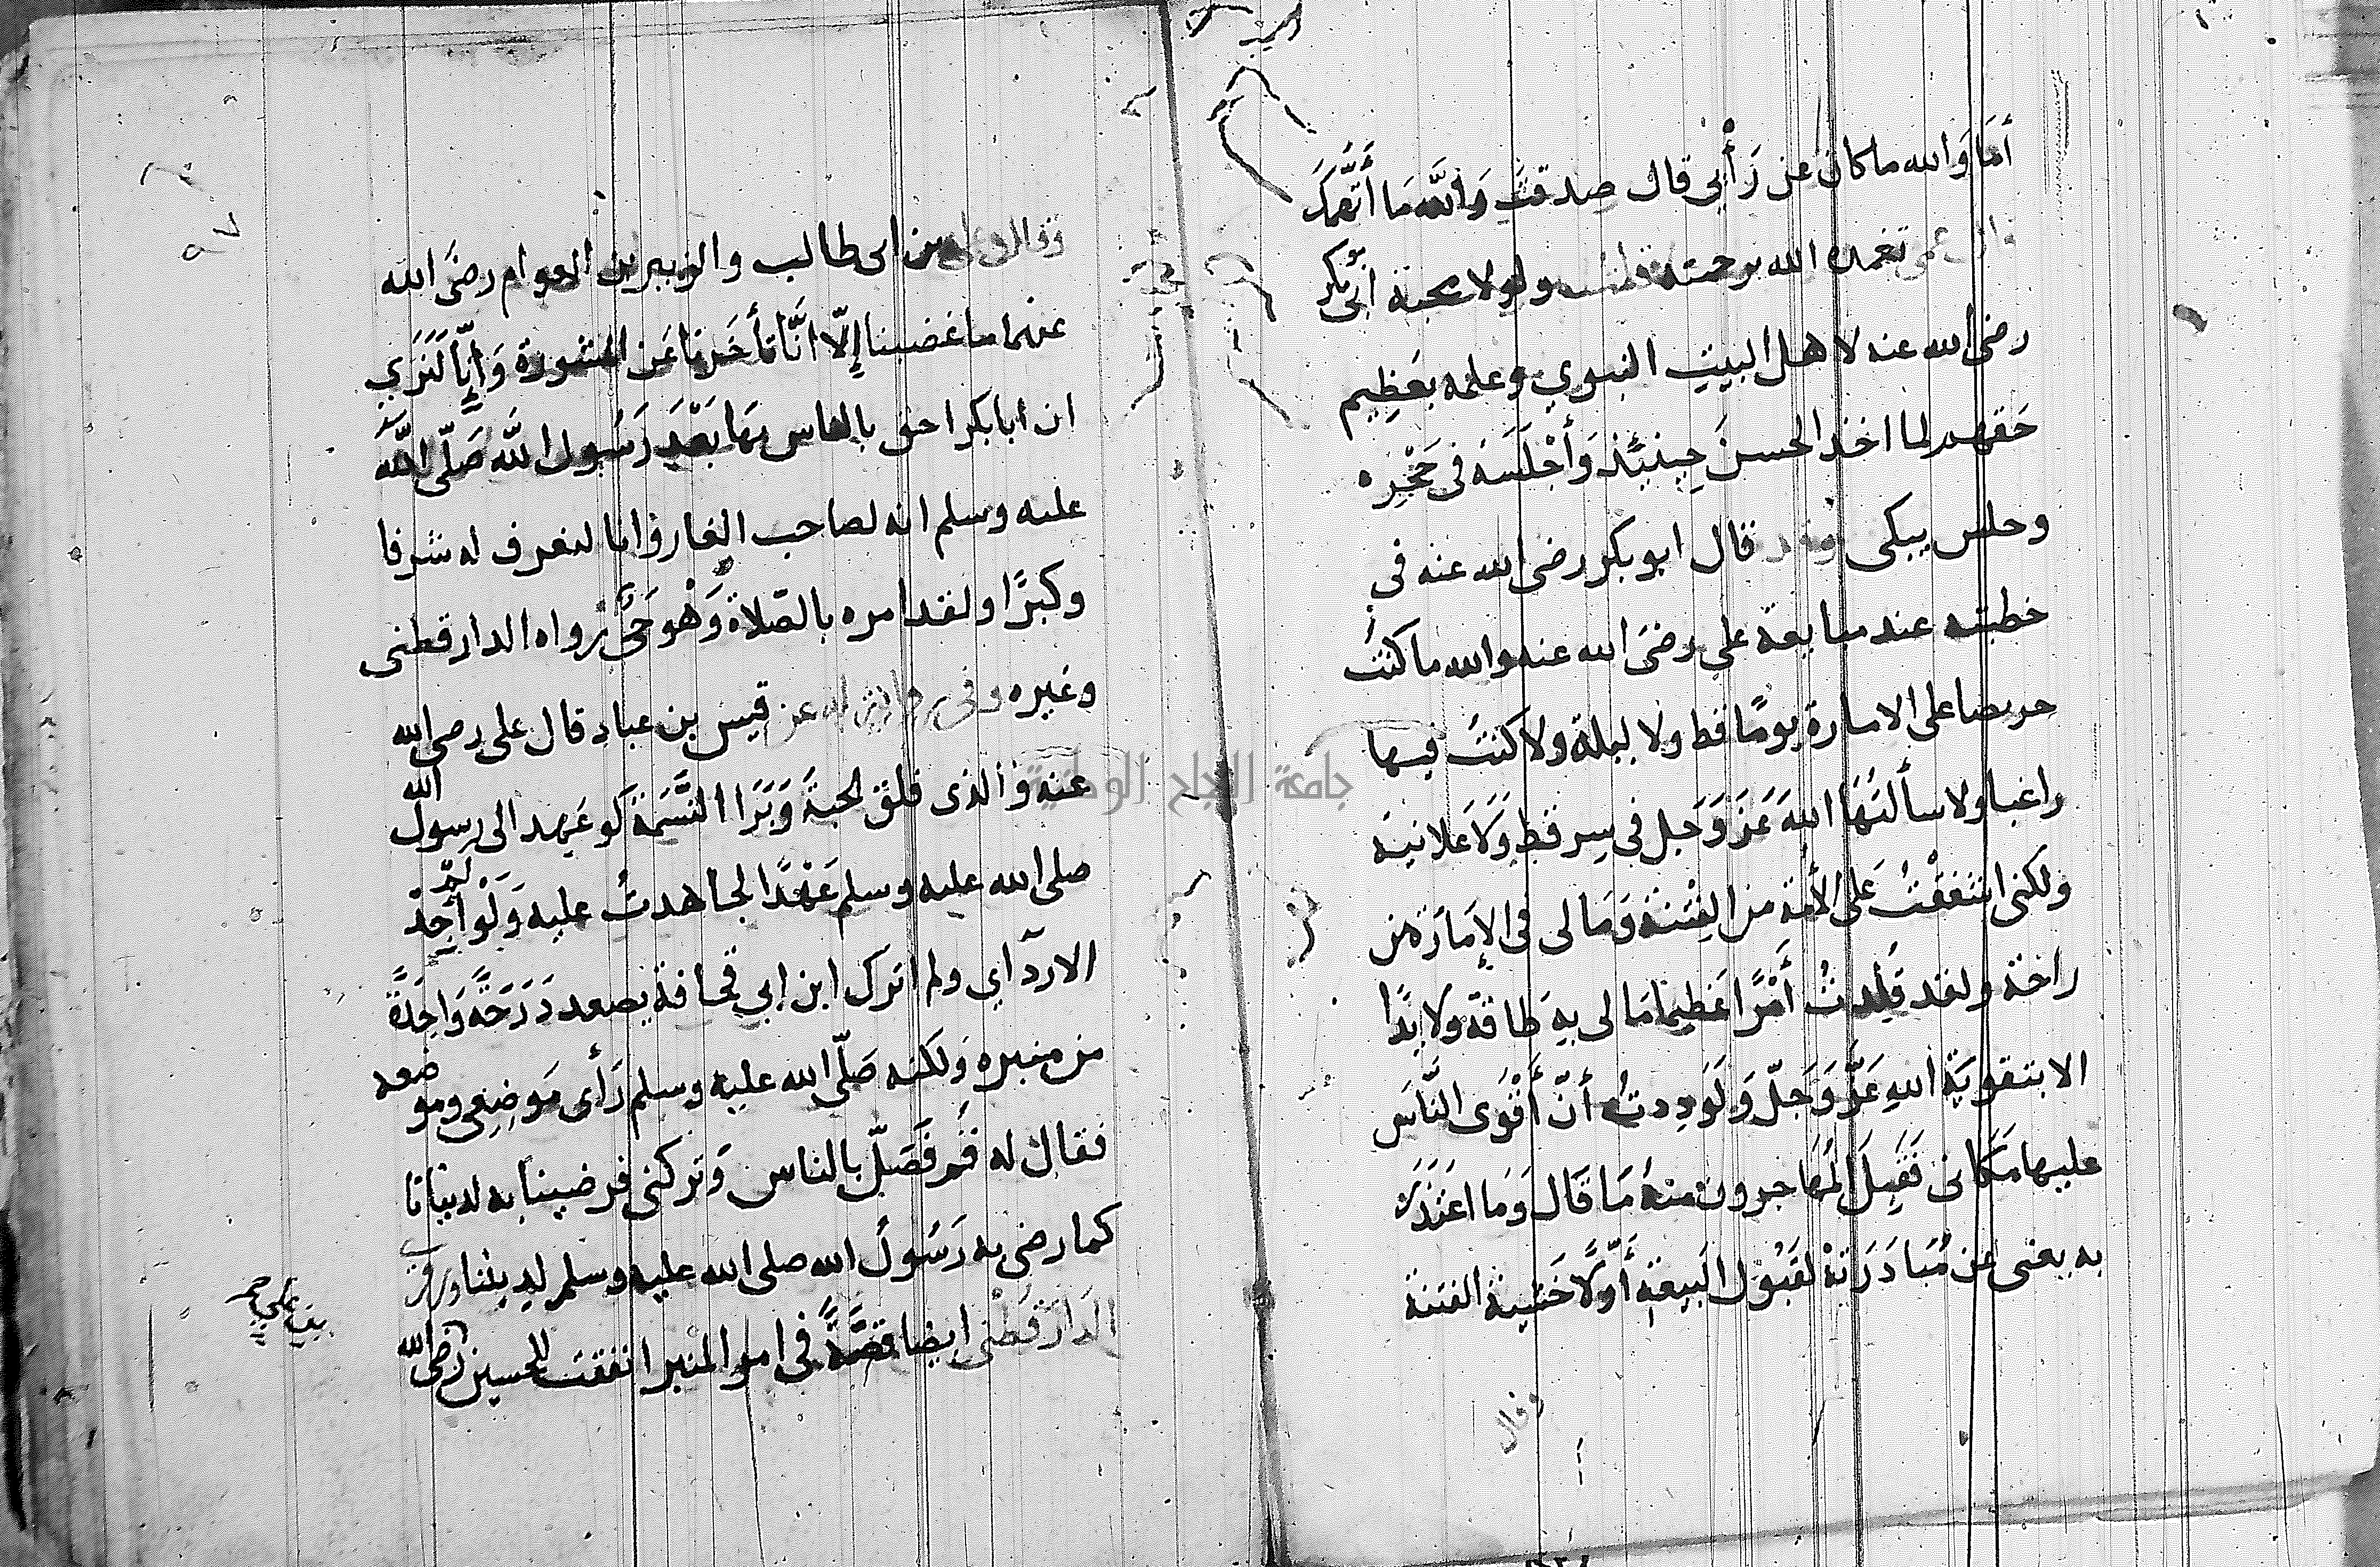 أمَا وَالله ما كان عن رَأْيي قال صدقت وَاللهِ مَا أتَّهِمُكَ
تغمده الله برحمته ولولا محبة ابى بكر
رضى الله عنه لاهل البيت النبوي وعلمه بعَظِيم
حَقهم لما اخذ الحسنَ حِينَئذ وَأجْلسَهُ فى حَجْرِه
وجلس يبكى قال ابو بكر رضى الله عنه فى
خطبته عند مبايعة علي رضىَ الله عنه والله ما كنتُ
حريصا على الامارة يومًا قط ولا ليلة ولا كنتُ فيها
راغبا ولا سألتهَا اللهَ عَزَ وَجَل في سِر قط وَلَا عَلانية
ولكنى اشفقْتُ عَلى الأمة من الفِتْنَة وَمَا لى فى الإمَارَة من
راحة ولقد قُلدتُ أمْرًا عَظيمًا مَا لى بِهِ طاقة ولا يدًا
الا بتقويَة اللهِ عَزَّ وَجَلّ وَلَوددتُ أنّ أقْوَى النَّاسَ
عليها مَكَانى فقبِلَ المُهَاجرون منهُ مَا قَال وَمَا اعتذرَ
به يعنى عن مُبَادَرَتهْ لقبُول البَيعَةِ أوّلًا خَشية الفتنة
وقال
وقال على بن ابى طالب والزبير بن العوام رضىَ الله
عنهما ما غضبنا إلّا انَّا تأخَرنا عَن المشورة وَإنّا لَنَرَي
ان ابا بكر احق بالناس بهَا بَعْدَ رَسُول اللهِ صَلّى اللهُ
عليه وسلم انه لصاحب الغار وانا لنعرف له شرفا
وكبرًا ولقد امره بالصّلاة وَهْو حَيٌّ رواه الدارقطنى
وغيره وفى عن قيس بن عباد قال على رضى الله
عنه والذى فلق الحبة وَبَرَا النَّسَمَة لَو عَهد الى رسول الله
صلى الله عليه وسلم عَهْدًا لجاهدتُ عليه وَلَوْ لم أجِدْ
الا ردآاي ولم اترك ابن ابي قحافة يصعد دَرَجَةً وَاحِدَةً
من منبره وَلكنه صَلّى الله عليه وسلم رَأى مَوضِعِى وموضعه
فقال له قُم فَصَلّ بالناس وَتركنى فرضينا به لدنيانا
كما رضى به رَسُولُ الله صلى الله عليه وسلم لديننا وروى
الدارَقطنى ايضا قصَّةً في امر المنبر اتفقت للحسين رضى الله
جامعة النجاح الوطنية
٩٧